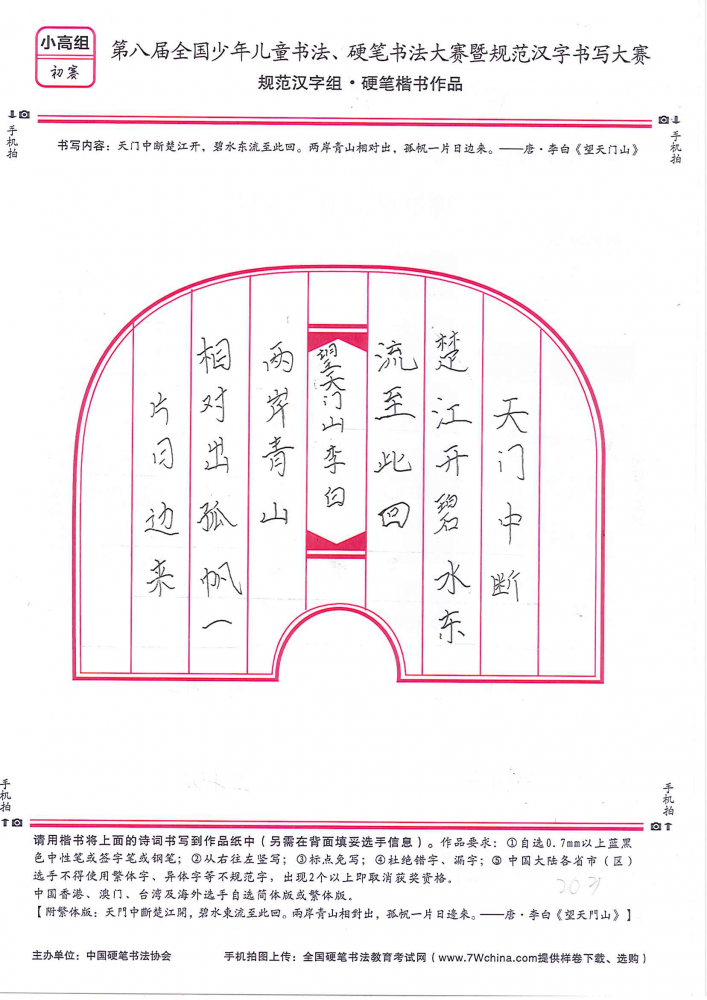 小高组
初赛
第八届全国少年儿童书法、硬笔书法大赛暨规范汉字书写大赛
规范汉字组·硬笔楷书作品
手机拍
手机拍
书写内容：天门中断楚江开，碧水东流至此回。两岸青山相对出，孤帆一片日边来。——唐·李白《望天门山》
天门中断
楚江开碧水东
流至此回
望天门山李白
两岸青山
相对出孤帆一
片日边来
手机拍
手机拍
请用楷书将上面的诗词书写到作品纸中（另需在背面填妥选手信息）。作品要求：①自选0.7mm以上蓝黑
色中性笔或签字笔或钢笔；②从右往左竖写；③标点免写；④杜绝错字、漏字；⑤中国大陆各省市（区）
选手不得使用繁体字、异体字等不规范字，出现2个以上即取消获奖资格。
中国香港、澳门、台湾及海外选手自选简体版或繁体版。
【附繁体版：天門中斷楚江開，碧水東流至此回。兩岸青山相對出，孤帆一片日邊來。——唐·李白《望天門山》】
主办单位：中国硬笔书法协会 手机拍图上传：全国硬笔书法教育考试网（www.7Wchina.com提供样卷下载、选购）